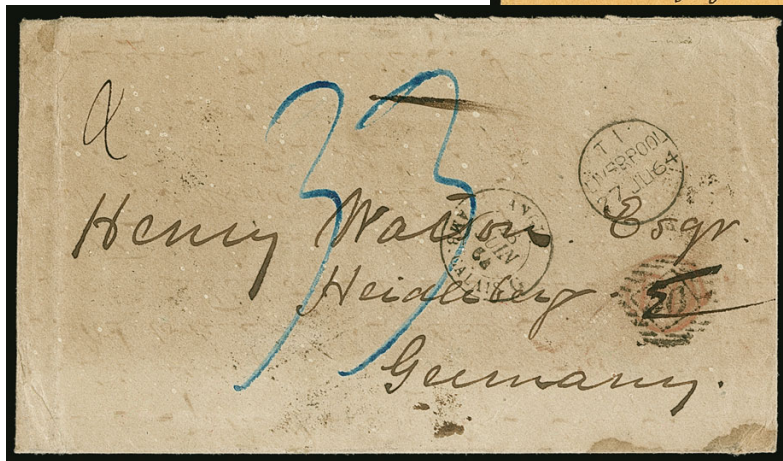 33
T 1
LIVERPOOL
27 JU 64
Henry Watson. Esqr.
Heidelberg.
Germany.